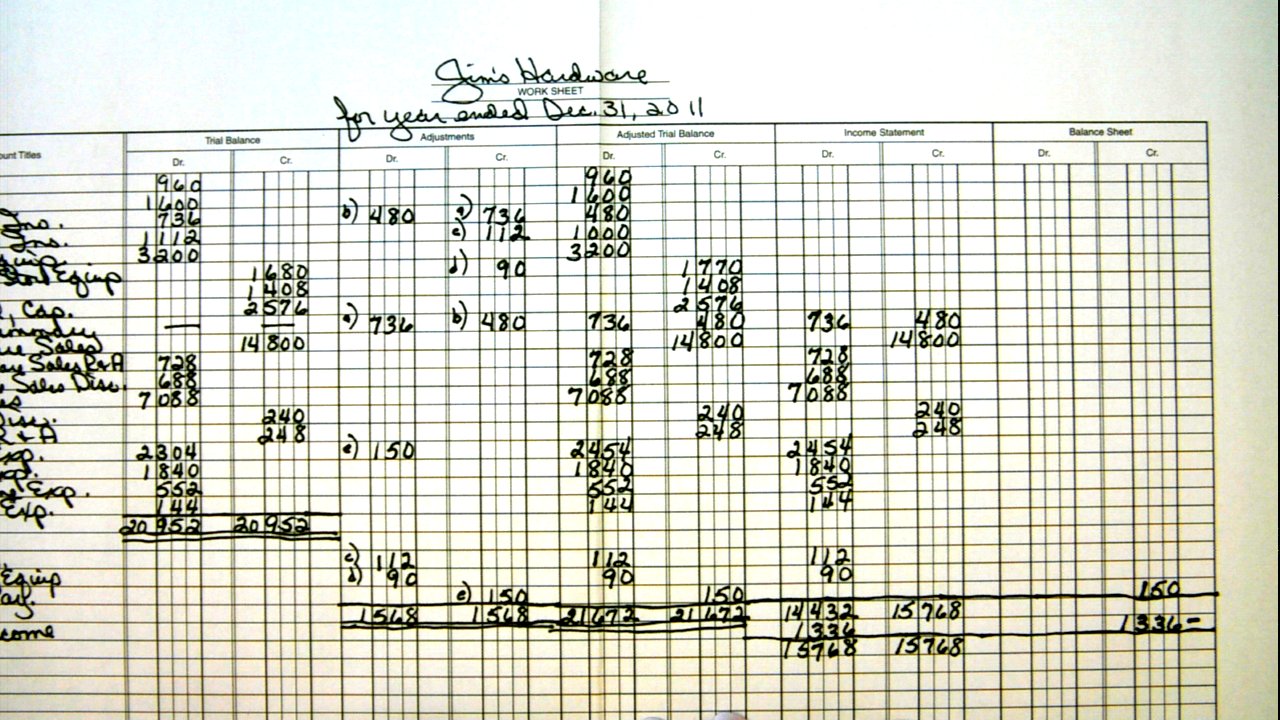 Jim's Hardware
WORK SHEET
for year ended Dec. 31, 2011
Trial Balance Adjustments Adjusted Trial Balance Income Statement Balance Sheet
ount Titles Dr. Cr. Dr. Cr. Dr. Cr. Dr. Cr. Dr. Cr.
960 960
1600 1600
Ins. 736 b) 480 a) 736 480
Ins. 1112 c) 112 1000
3200 3200
Store Equip 1680 d) 90 1770
1408 1408
, Cap. 2576 2576
— — a) 736 b) 480 736 480 736 480
Sales 14800 14800 14800
Sales R & A 728 728 728
Sales Disc. 688 688 688
es 7088 7088 7088
Disc. 240 240 240
R & A 248 248 248
Exp. 2304 e) 150 2454 2454
Exp. 1840 1840 1840
Exp. 552 552 552
Exp. 144 144 144
20952 20952
c) 112 112 112
Equip d) 90 90 90
Pay. e) 150 150 150
1568 1568 21672 21672 14432 15768
come 1336 1336-
15768 15768